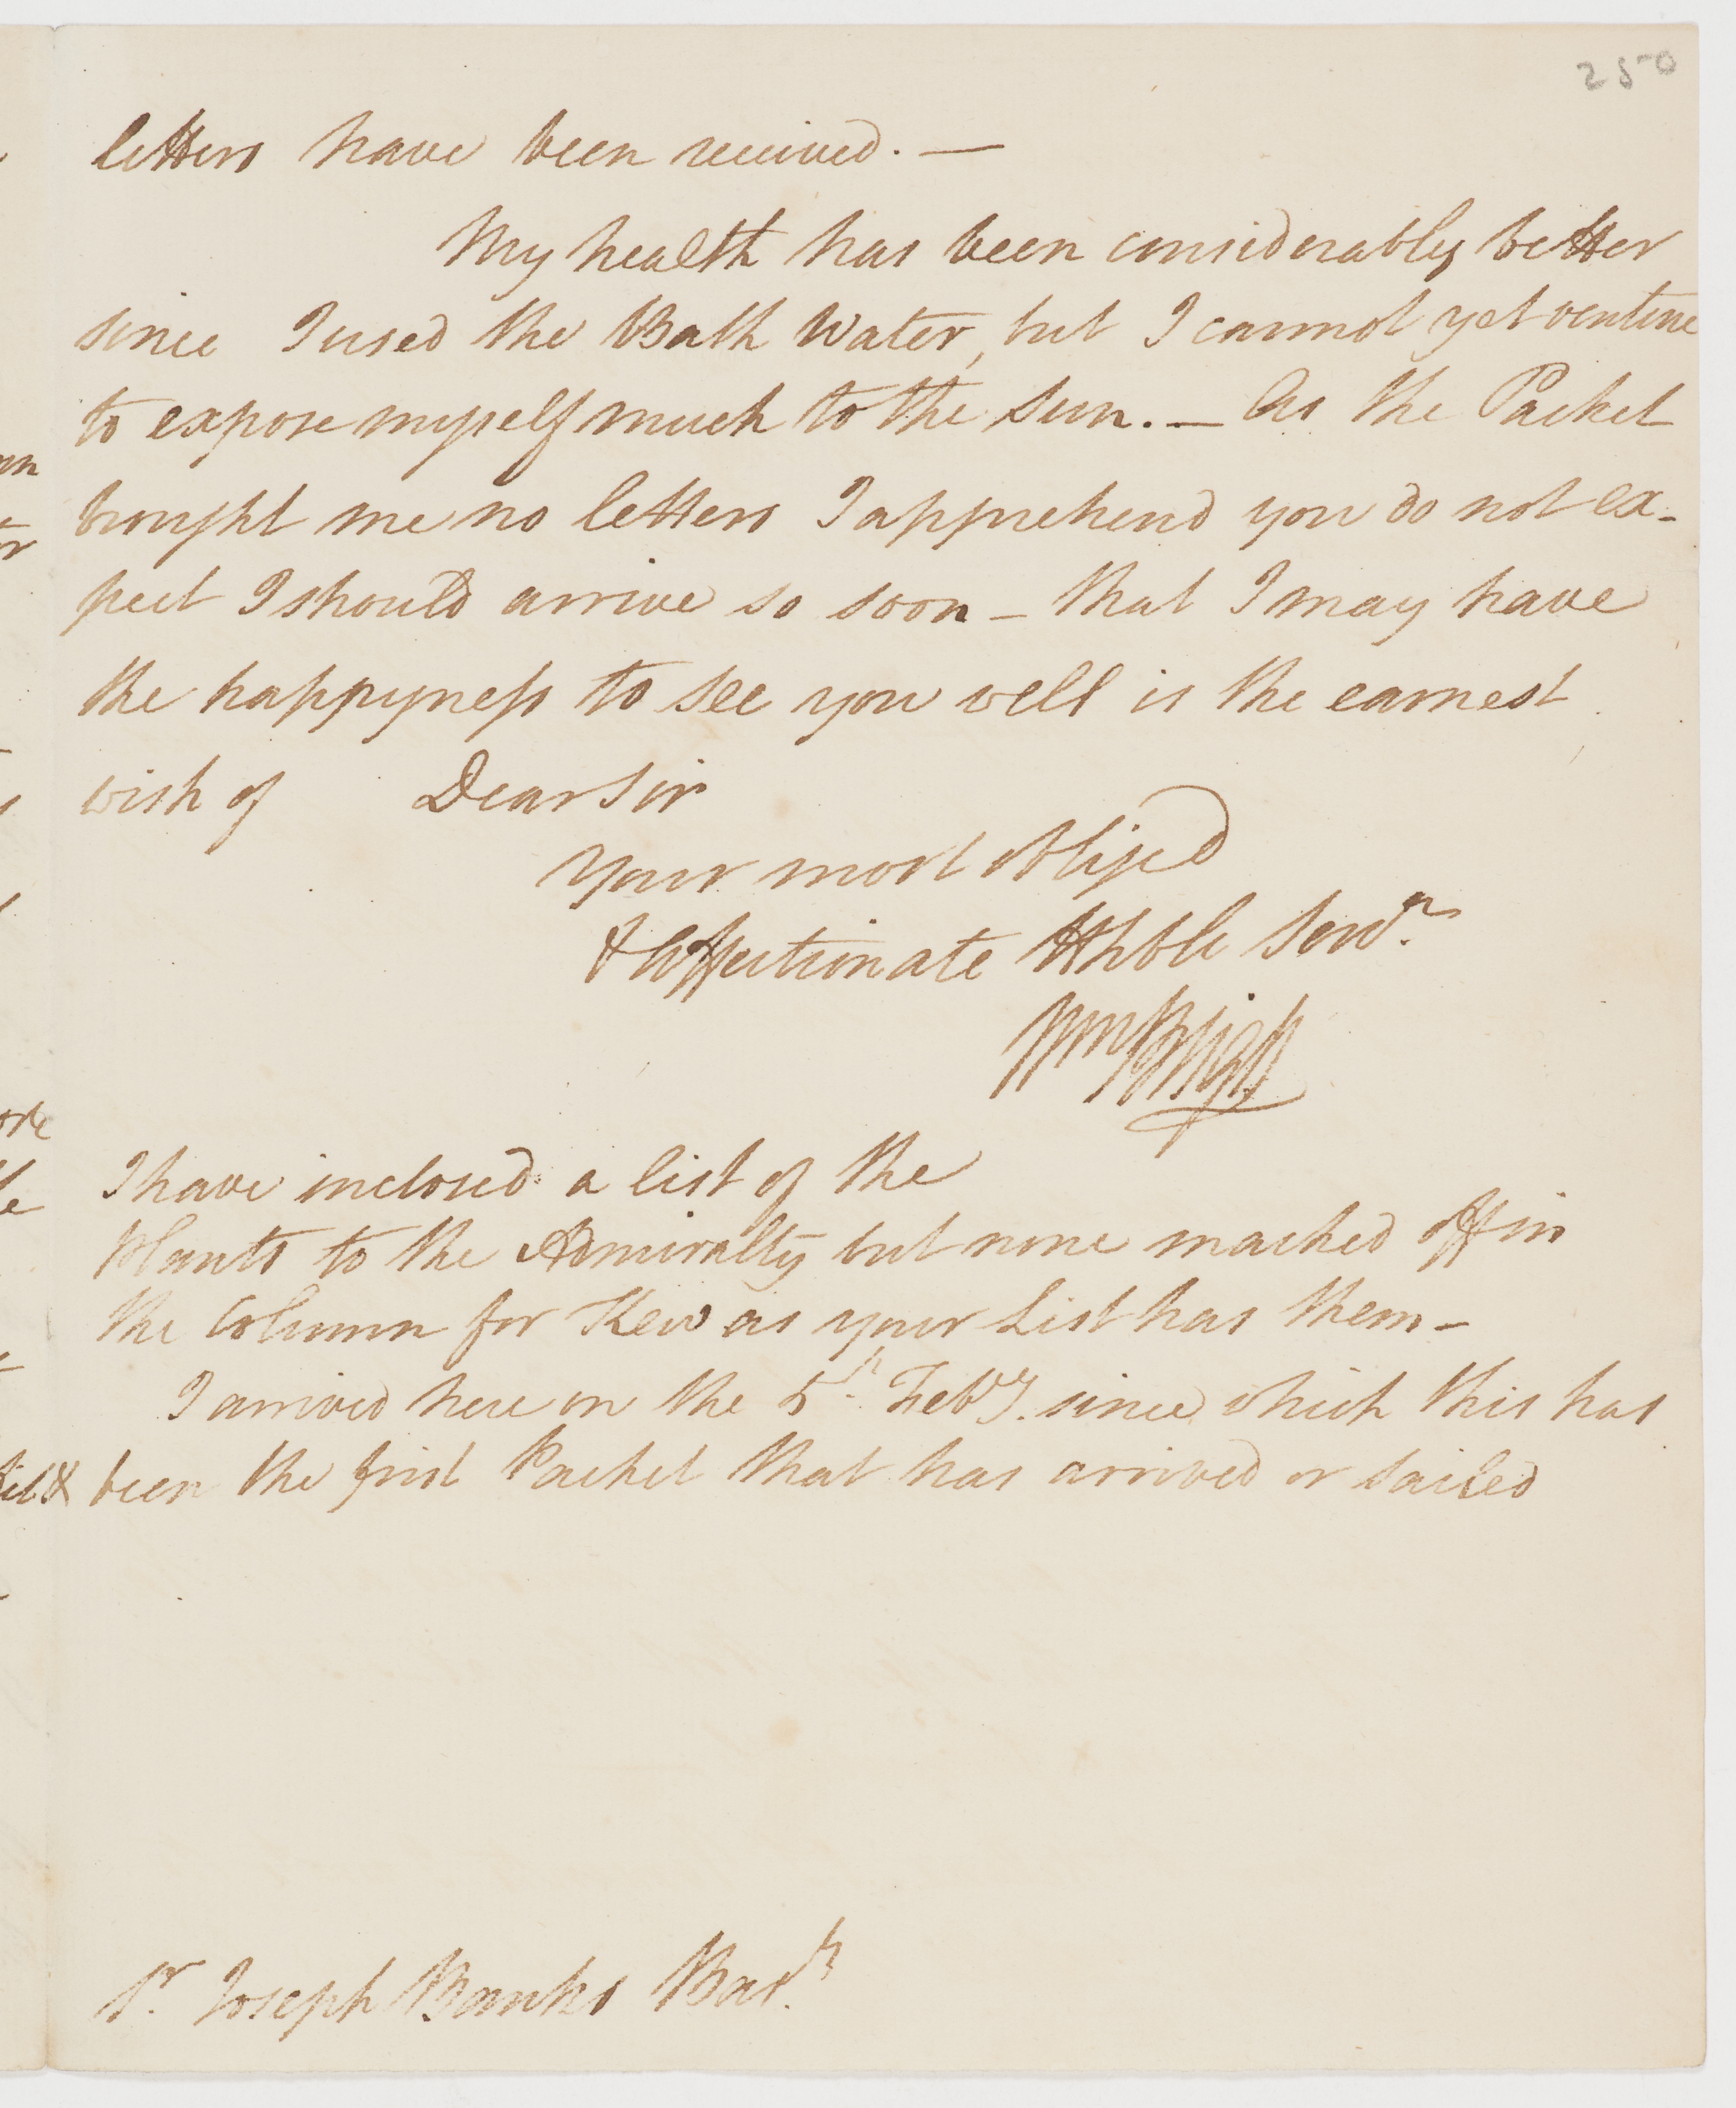 250
letters have been received. —
My health has been considerably better
since I used the Bath Water, but I cannot yet venture
to expose myself much to the Sun. — As the Packet
brought me no letters I apprehend you do not ex-
pect I should arrive so soon – that I may have
the happyness to see you well is the earnest
wish of Dear Sir
Your most obliged
& Affectionate Hhble Servt.
Wm Bligh
I have inclosed a list of the
Plants to the Admiralty but none marked off in
the Column for Kew as your List has them –
I arrived here on the 5th. Feby. since which this has
been the first Packet that has arrived or sailed
Sr. Joseph Banks Bart.